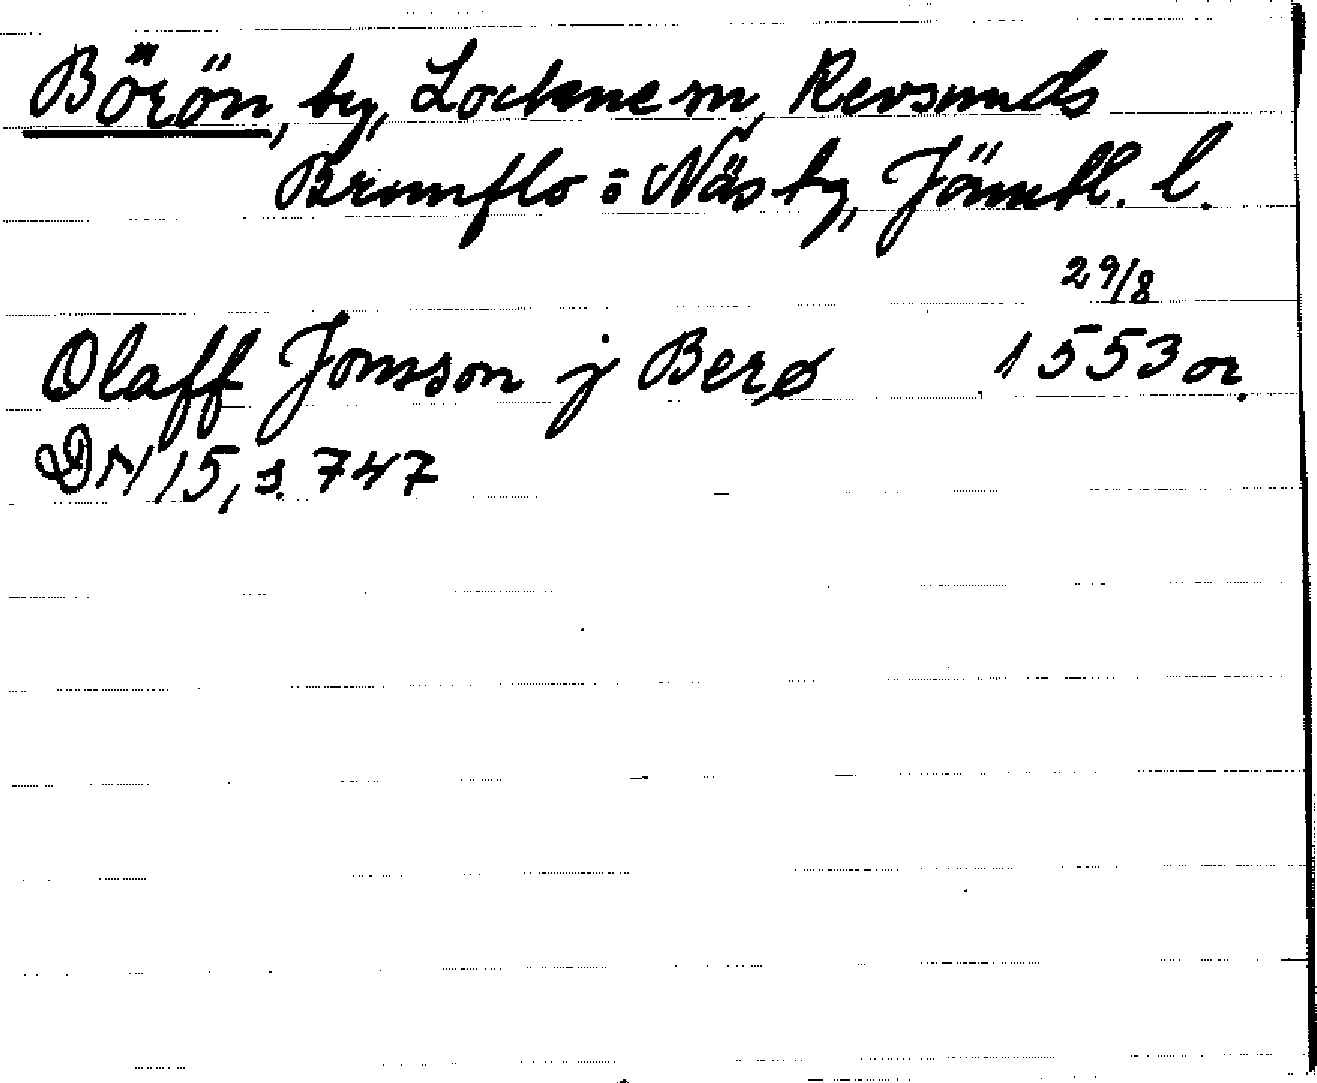 Börön, by, Lockne sn, Revsunds
Brunflo o Näs tg, Jämtl. l.
29/8
Olaff Jonsson j Berø 1553 or.
DN 15, s. 747